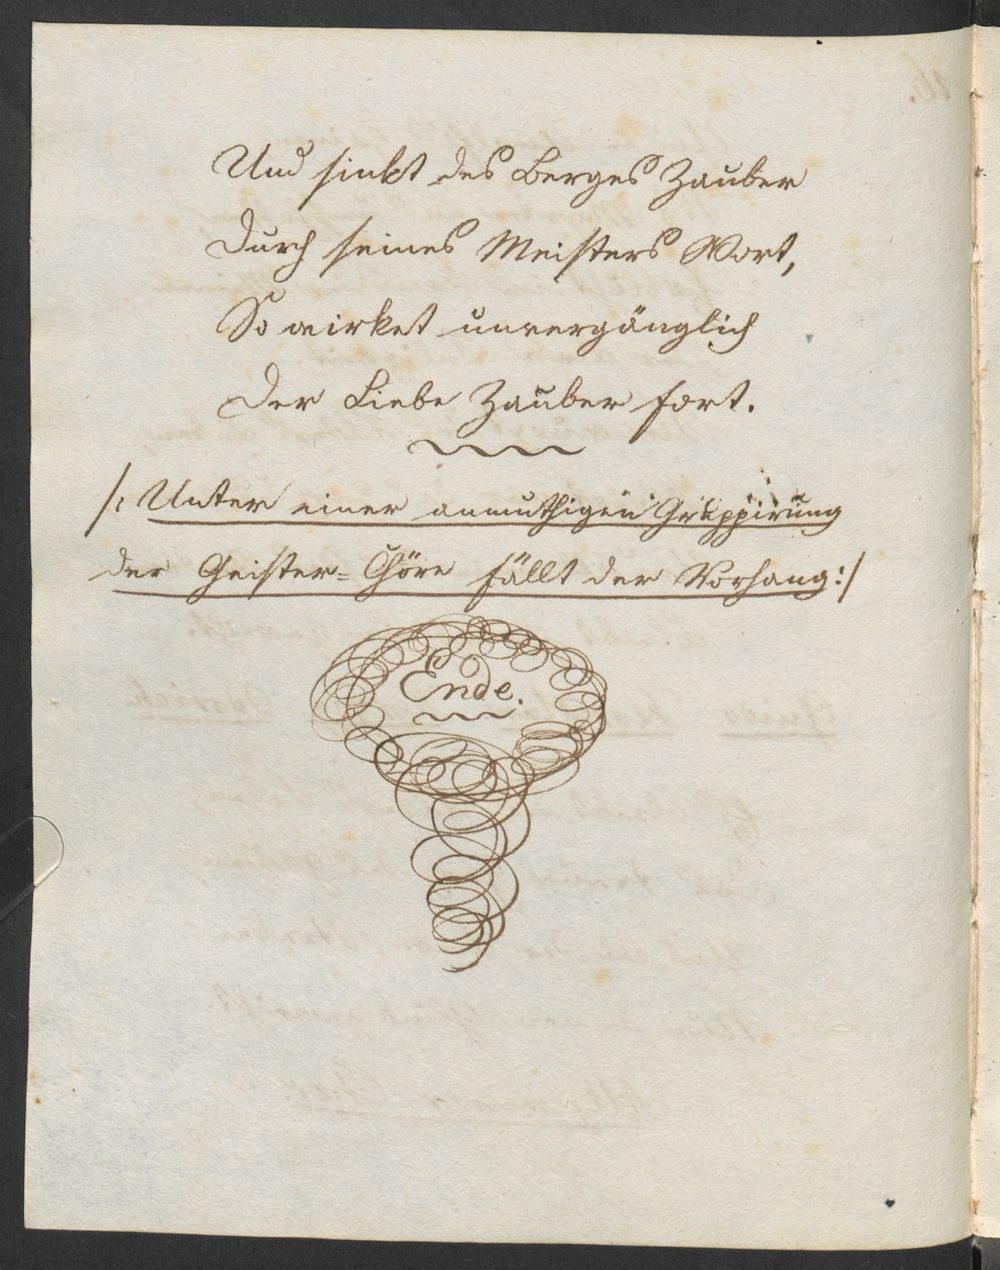 Und sinkt des Berges Zauber
Durch seines Meisters Wort,
So wirket unvergänglich
Der Liebe Zauber fort.
/: Unter einer anmuthigen Gruppirung
der Geister=Chöre fällt der Vorhang :/
Ende.